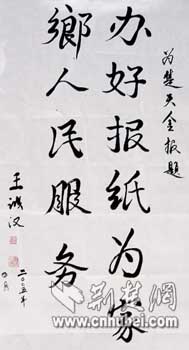 为楚天金报题
办好报纸为家
鄉人民服务
王诚汉
二〇〇五年
四月
荆楚網
www.cnhubei.com